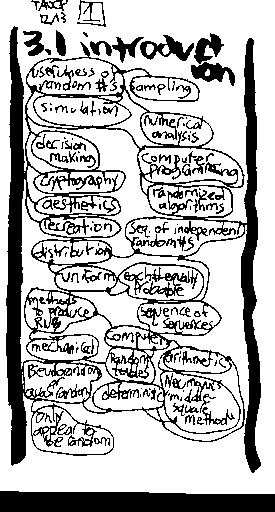 TAOCP
12/13
1
3.1 introduction
usefulness of
random #s
sampling
simulation
numerical
analysis
decision
making
computer
programming
cryptography
randomized
algorithms
aesthetics
recreation
Seq. of independent
random #s
distribution
uniform
each # equally
probable
methods
to produce
RNs
sequence of
sequences
computers
mechanical
random
tables
arithmetic
Pseudorandom
or
quasirandom
deterministic
Von Neumann's
middle-
square
method
only
appear to
be random